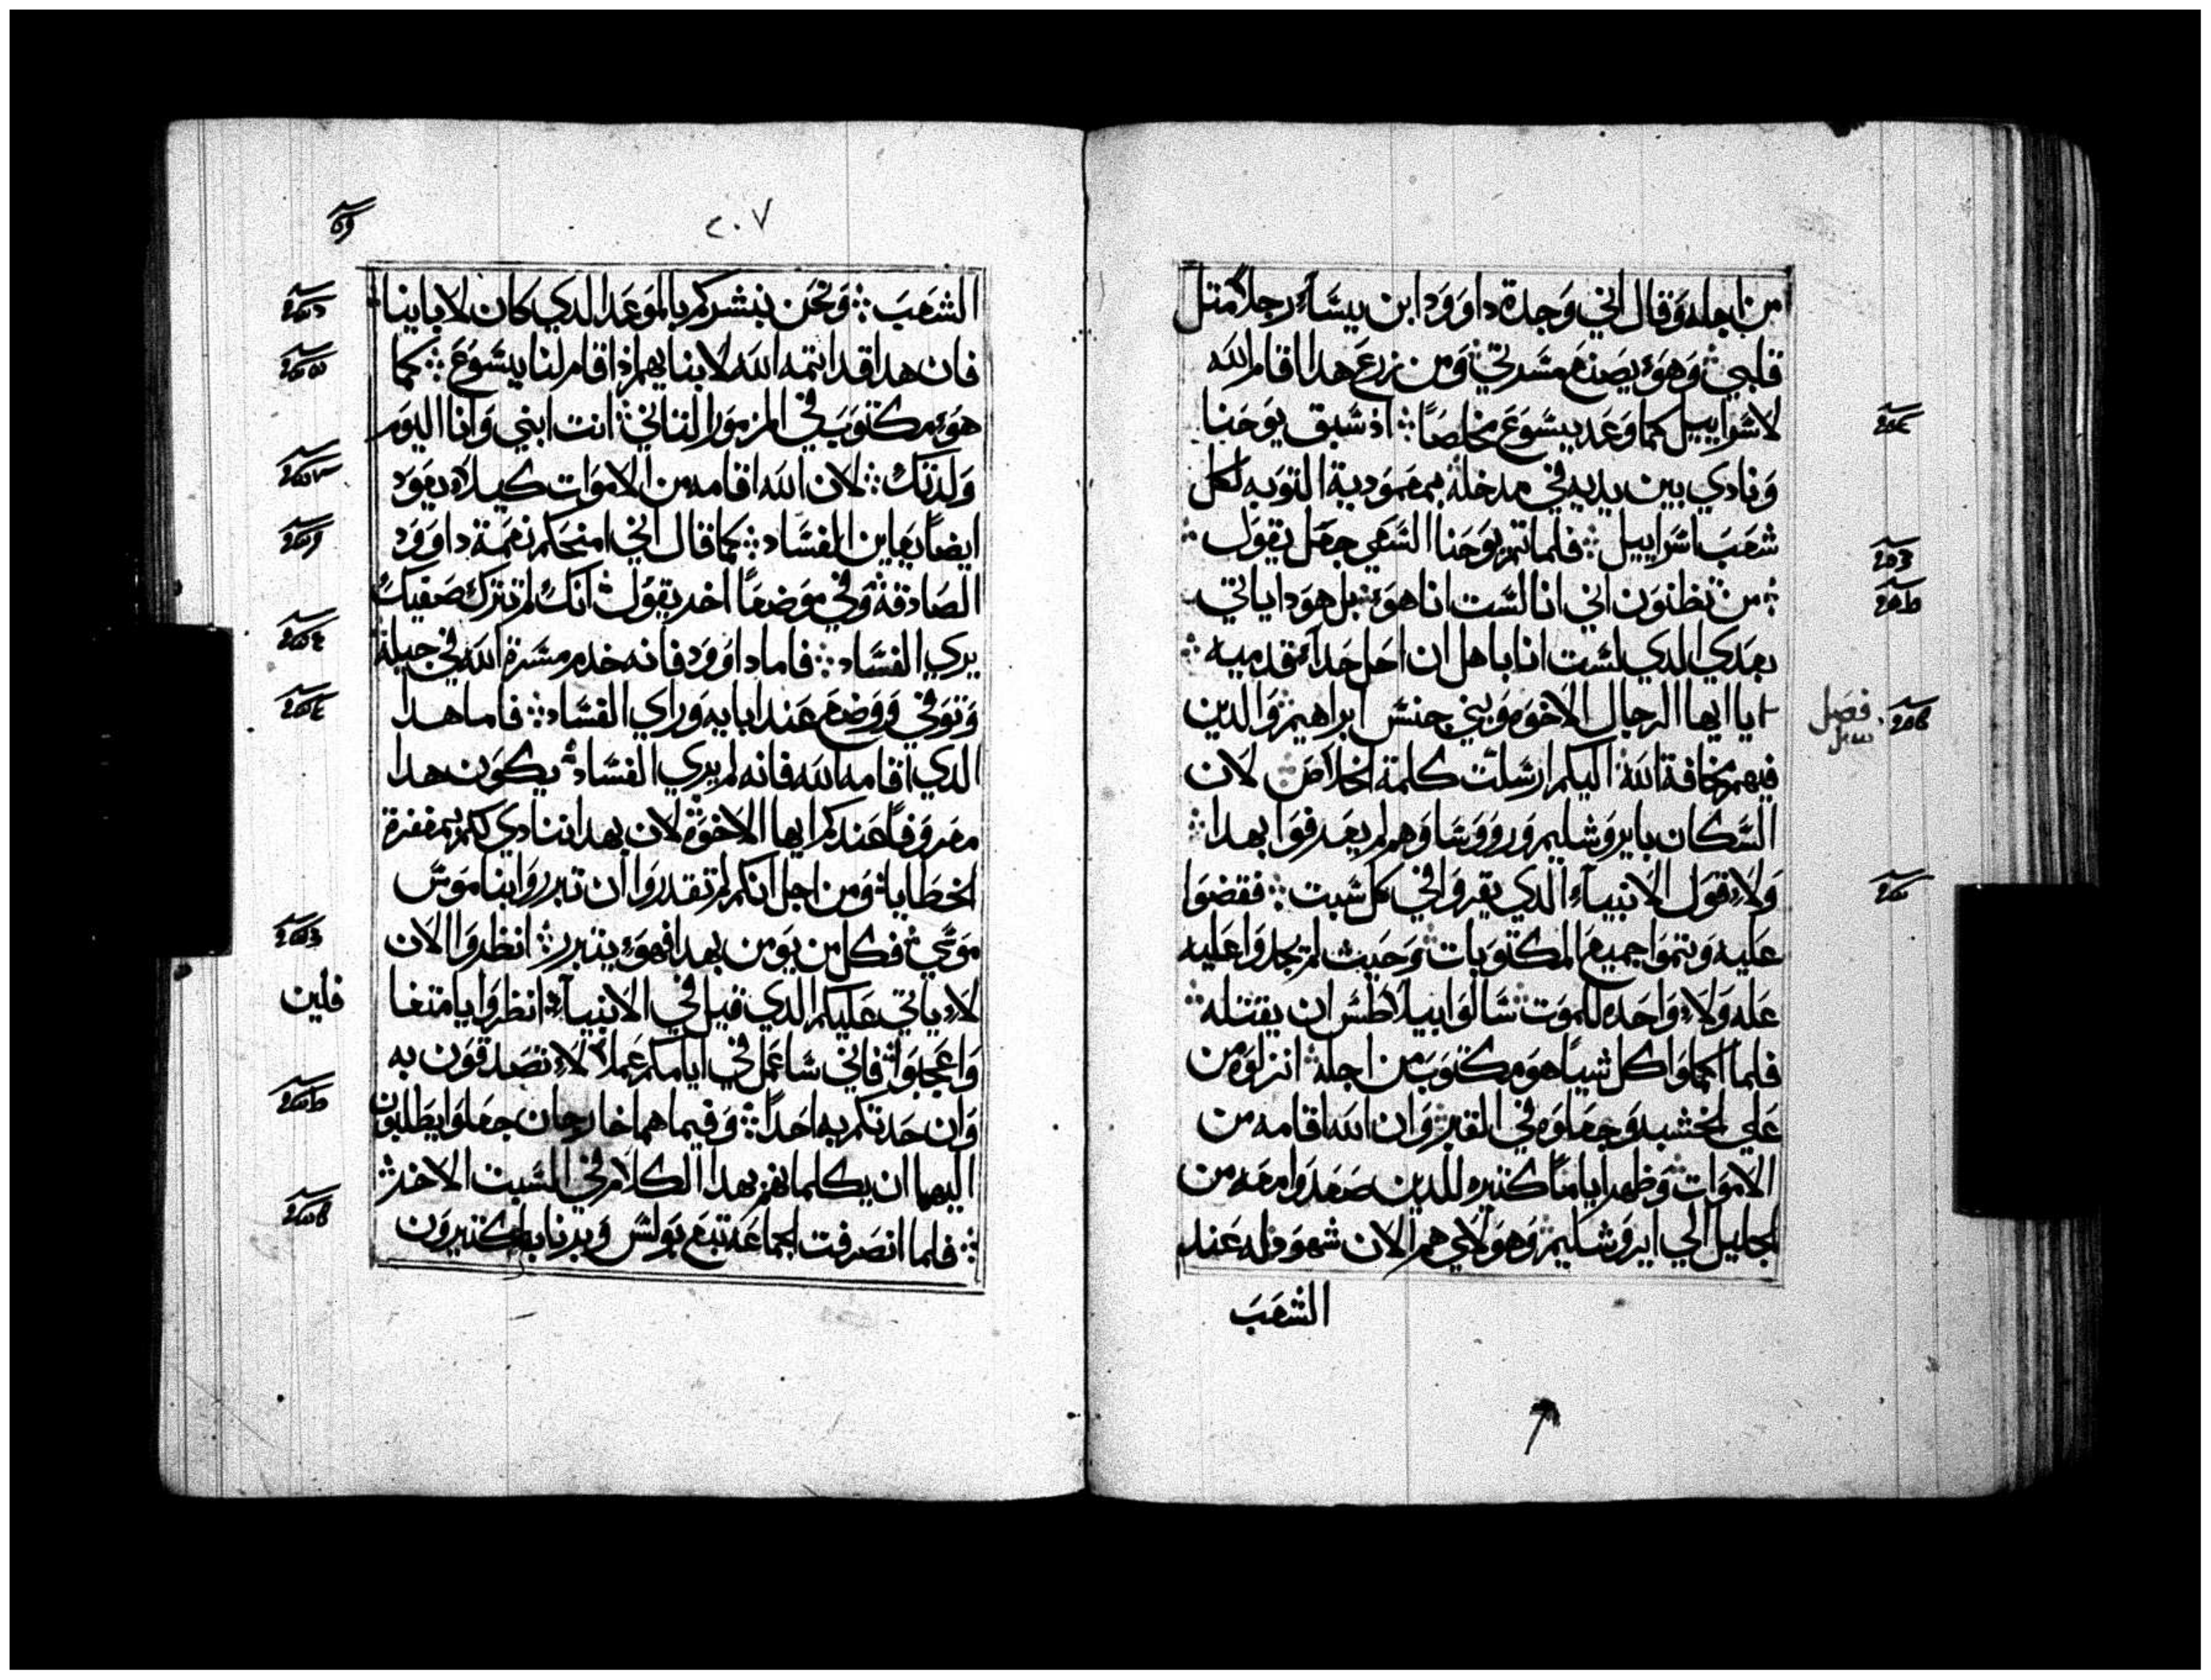 من اجله وقال اني وجدة داوود ابن يسّاء رجلاً متل
قلبي وهوء يصنع مسّرتي ومن زرع هدا اقام الله
لاسّراييل كما وعد يسّوع مخلصاً اد سّبق يوحنا
ونادي بين يديه في مدخله بمعمودية التوبه لكل
شعب اسّراييل فلما تمم يوحنا السّعي جعل يقول
من تظنون اني انا لسّت انا هوء بل هودا ياتي
بعدي الدي لسّت انا باهل ان احل حداء قدميه
ايا ايها الرجال الاخوه وبني جنسّ ابراهيم والدين
فيهم مخافة الله اليكم ارسّلت كلمة الخلاص لان
السّكان بايروشليم وروسّاوهم لم يعرفوا بهدا
ولاء قول الانبياء الدي يقروا في كل سّبت فقضوا
عليه وتموا جميع المكتوبات وحيث لم يجدوا عليه
عله ولاء واحده للموت سّالوا بيلاطسّ ان يقتله
فلما اكملوا كل شياً هو مكتوب من اجله انزلوه من
علي الخشبه وجعلوه في القبر وان الله اقامه من
الاموات وظهر اياماً كتيره للدين صعدوا معه من
الجليل الي ايروشليم وهولاي هم الان شهود له عند
الشعب
فصل
٢٠٧
الشعب ونحن نبشركم بالموعد الدي كان لاباينا
فان هدا قد اتمه الله لابنايهم اد اقام لنا يسّوع كما
هوء مكتوب في المزمور التاني انت ابني وانا اليوم
ولدتك لان الله اقامه من الاموات كيلاء يعود
ايضاً يعاين الفسّاد كما قال اني امنحكم نعمة داوود
الصادقه وفي موضعاً اخر يقول انك لم تترك صفيك
يري الفسّاد فاما داوود فانه خدم مسّرة الله في جيله
وتوفي ووضع عند ابايه وراي الفسّاد فاما هدا
الدي اقامه الله فانه لم يري الفسّاد يكون هدا
معروفاً عندكم ايها الاخوه لان بهدا ننادي لكم بمغفرة
الخطايا ومن اجل انكم لم تقدروا ان تبرروا بناموسّ
موسّي فكل من يومن بهدا فهوء يتبرر انظروا الان
لاء ياتي عليكم الدي قيل في الانبياء انظروا يا متغا
فلين
واعجبوا فاني سّاعمل في ايامكم عملاً لاء تصدقون به
وان حدتكم به احداً وفيما هما خارجان جعلوا يطلبون
اليهما ان يكلمانهم بهدا الكلام في السّبت الاخر
فلما انصرفت الجماعه تبع بولسّ وبرنابا كتيرون